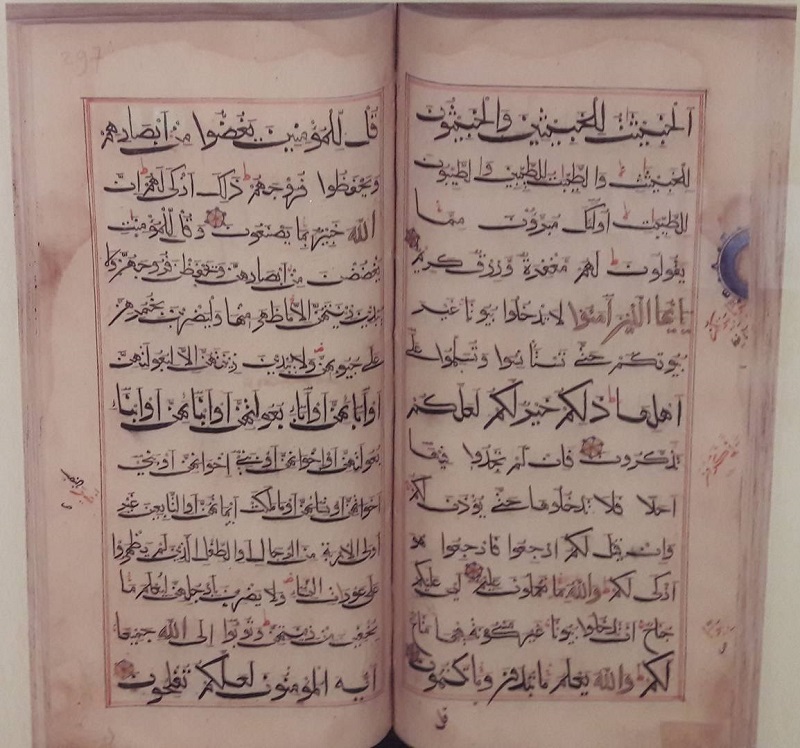 الخبيثت للخبيثين والخبيثون
للخبيثت والطيبت للطيبين والطيبون
للطيبت اولئك مبرؤن مما
يقولون لهم مغفرة ورزق كريم
يايها الذين آمنوا لا تدخلوا بيوتا غير
بيوتكم حتى تستأنسوا وتسلموا على
اهلها ذلكم خير لكم لعلكم
تذكرون فان لم تجدوا فيها
احدا فلا تدخلوها حتى يؤذن لكم
وان قيل لكم ارجعوا فارجعوا هو
ازكى لكم والله بما تعملون عليم ليس عليكم
جناح ان تدخلوا بيوتا غير مسكونة فيها متاع
لكم والله يعلم ما تبدون وما تكتمون
قل
قل للمؤمنين يغضوا من ابصارهم
ويحفظوا فروجهم ذلك ازكى لهم ان
الله خبير بما يصنعون وقل للمؤمنت
يغضضن من ابصارهن ويحفظن فروجهن ولا
يبدين زينتهن الا ما ظهر منها وليضربن بخمرهن
على جيوبهن ولا يبدين زينتهن الا لبعولتهن
او آبائهن او آباء بعولتهن او ابنائهن او ابناء
بعولتهن او اخوانهن او بني اخوانهن او بني
اخواتهن او نسائهن او ما ملكت ايمانهن او التابعين غير
اولي الاربة من الرجال او الطفل الذين لم يظهروا
على عورات النساء ولا يضربن بارجلهن ليعلم ما
يخفين من زينتهن وتوبوا الى الله جميعا
ايه المؤمنون لعلكم تفلحون